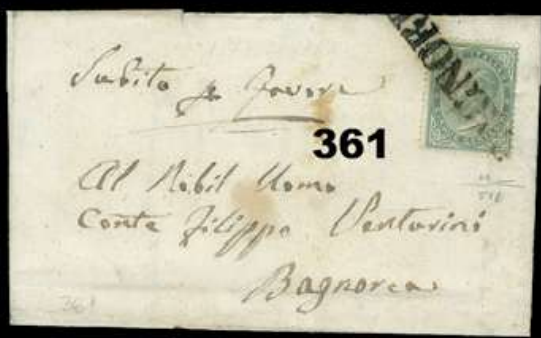 Subito per favore
361
Al Nobil Uomo
Conte Filippo Venturini
Bagnorea